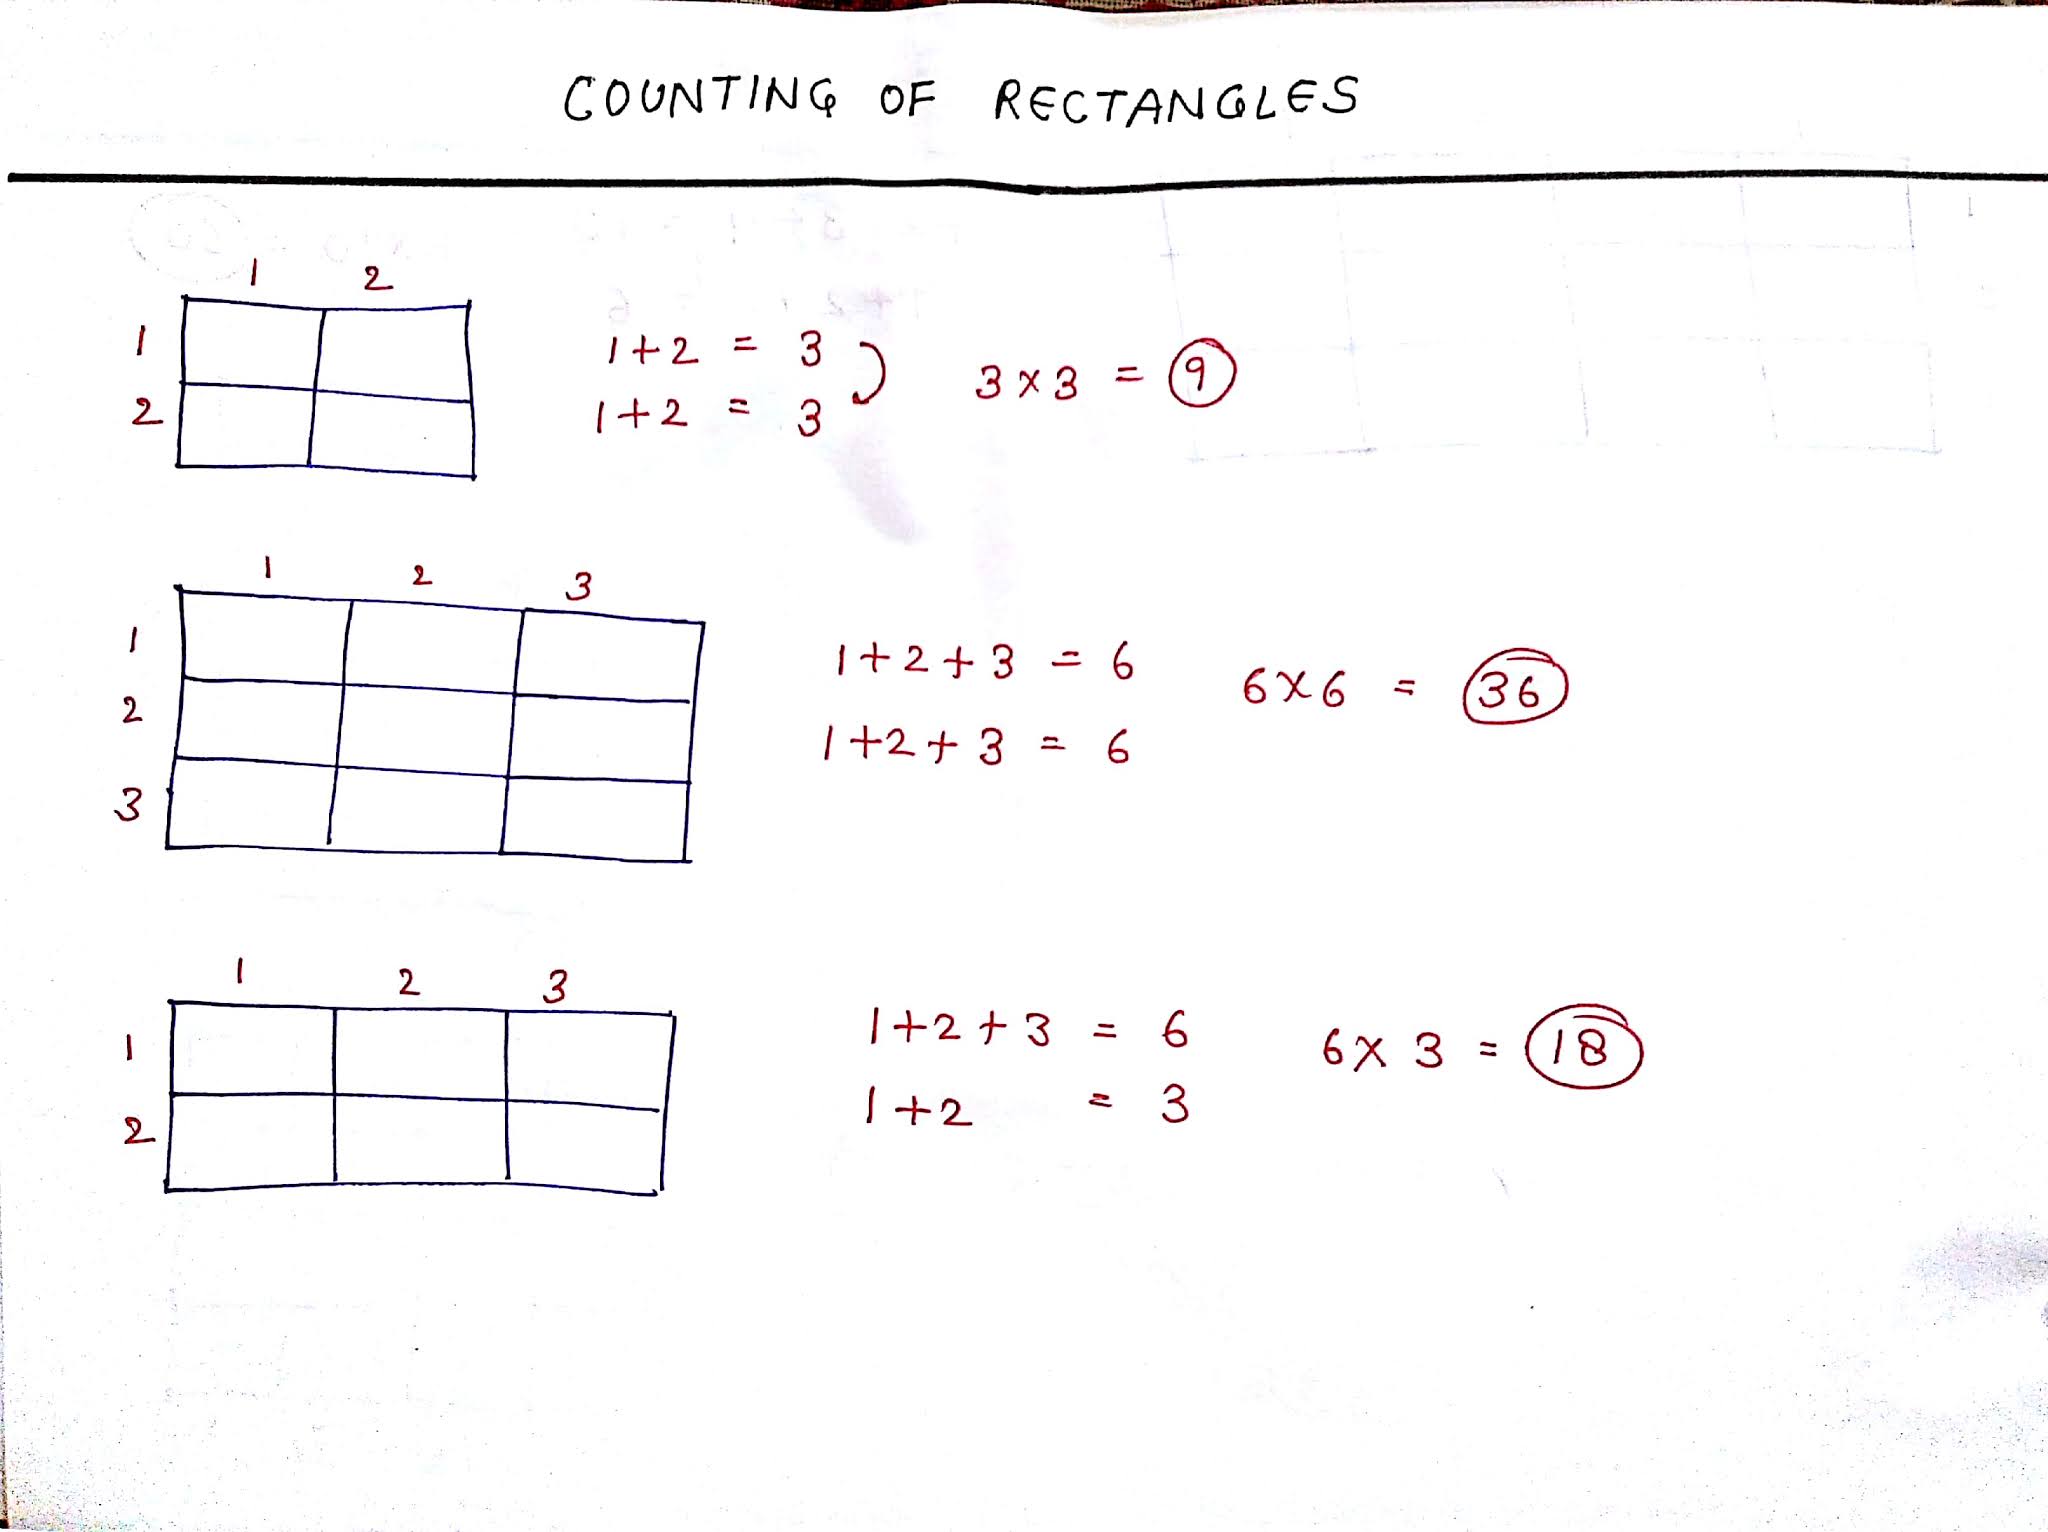 COUNTING OF RECTANGLES
1 2
1
2
1+2 = 3
1+2 = 3
3×3 = 9
1 2 3
1
2
3
1+2+3 = 6
1+2+3 = 6
6×6 = 36
1 2 3
1
2
1+2+3 = 6
1+2 = 3
6×3 = 18